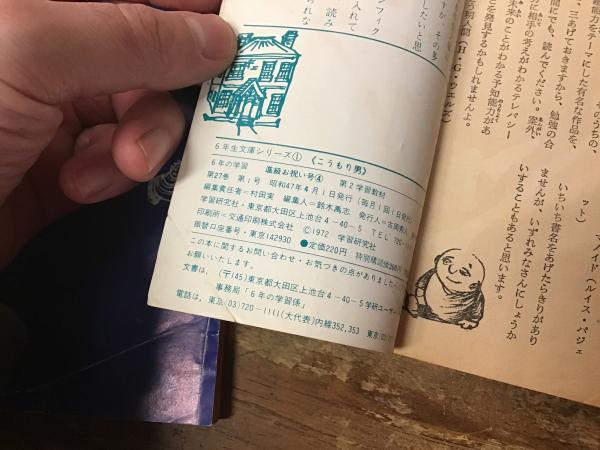 そのうちの、
能力をテーマにした有名な作品を、
三あげておきますから、勉強の合
間にでも、読んでください。案外、
に相手の考えがわかるテレパシー
未来のことがわかる予知能力があ
とを発見するかもしれませんよ。
明人間（H・G・ウエルズ）
マノイド（ルイス・パジェ
ット）
いちいち書名をあげたらきりがあり
ませんが、いずれみなさんにしょうか
いすることもあると思います。
すか、その多
したいと思
ンフィク
入れて
読み
られな
6年生文庫シリーズ① 《こうもり男》
6年の学習 進級お祝い号④ 第2学習教材
第27巻 第1号 昭和47年4月1日発行（毎月1回1日発行）
編集責任者＝村田実 編集人＝鈴木禹志 発行人＝古岡秀人
学習研究社・東京都大田区上池台4-40-5 TEL 720-
印刷所＝交通印刷株式会社 ©1972 学習研究社
振替口座番号・東京142930 ●定価220円 特別購読価200円
この本に関するお問い合わせ・お気づきの点がありましたら
お願いいたします。
文書は、（〒145）東京都大田区上池台4-40-5学研ユーザー
事務局「6年の学習係」
電話は、東京(03)720-1111(大代表)内線352,353 東京(03)